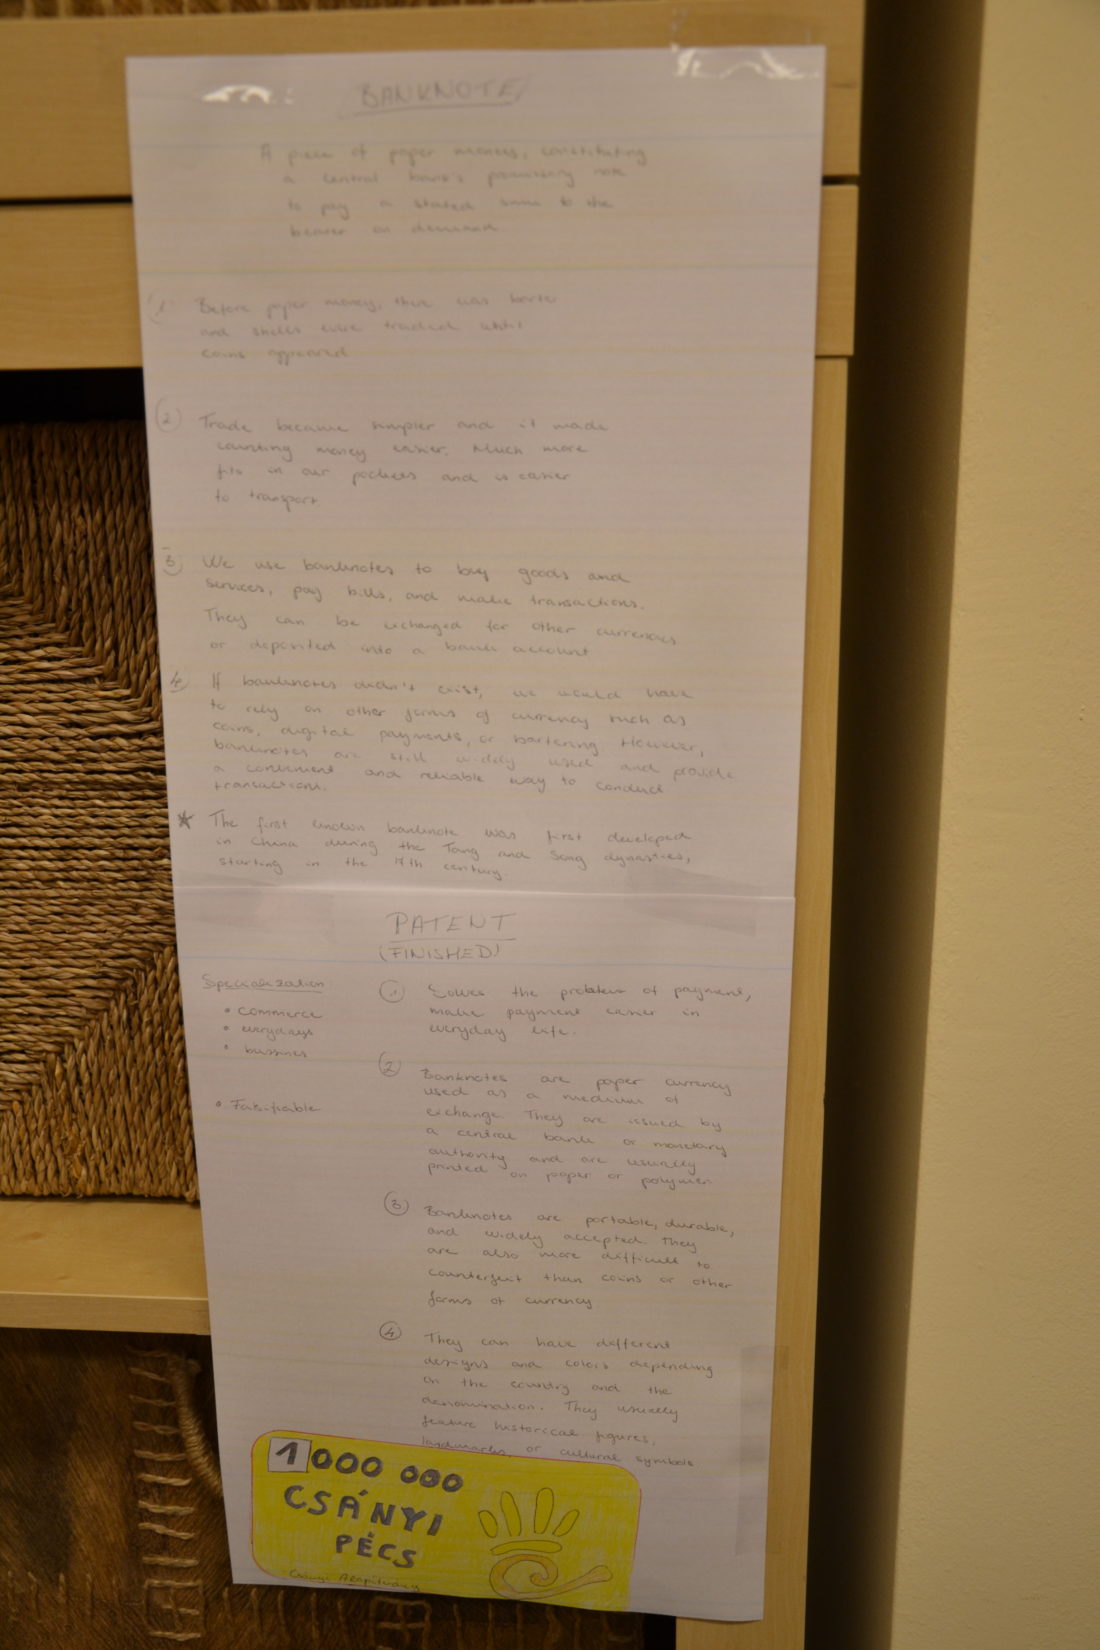 BANKNOTE
A piece of paper money, constituting
a central bank's promissory note
to pay a stated sum to the
bearer on demand.
1 Before paper money, there was barter
and shells were traded until
coins appeared
2 Trade became simpler and it made
counting money easier. Much more
fits in our pockets and is easier
to transport
3 We use banknotes to buy goods and
services, pay bills, and make transactions.
They can be exchanged for other currencies
or deposited into a bank account
4 If banknotes didn't exist, we would have
to rely on other forms of currency such as
coins, digital payments, or bartering. However,
banknotes are still widely used and provide
a convenient and reliable way to conduct
transactions.
* The first known banknote was first developed
in China during the Tang and Song dynasties,
starting in the 7th century.
PATENT
(FINISHED)
Specialization
• commerce
• everydays
• bussines
• Falsifiable
1 Solves the problem of payment,
make payment easier in
everyday life.
2 Banknotes are paper currency
used as a medium of
exchange. They are issued by
a central bank or monetary
authority and are usually
printed on paper or polymer.
3 Banknotes are portable, durable,
and widely accepted. They
are also more difficult to
counterfeit than coins or other
forms of currency
4 They can have different
designs and colors depending
on the country and the
denomination. They usually
feature historical figures,
landmarks, or cultural symbols
1000 000
CSÁNYI
PÉCS
Csányi Alapítvány